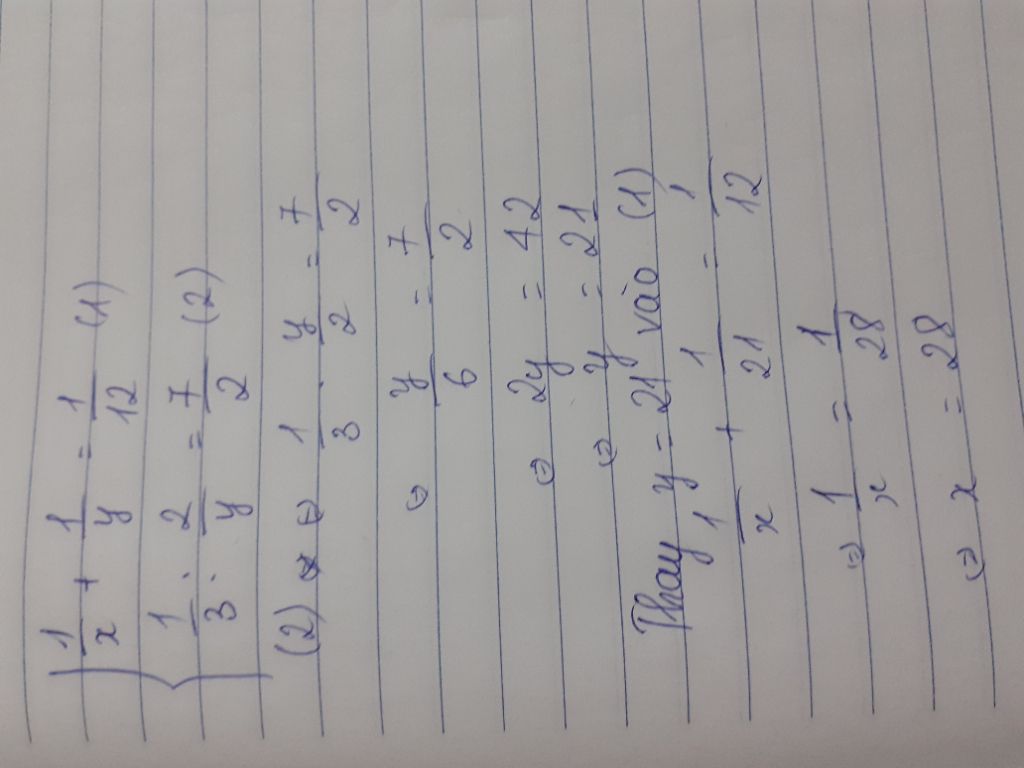 { 1/x + 1/y = 1/12 (1)
1/3 : 2/y = 7/2 (2)
(2) ⇔ 1/3 . y/2 = 7/2
⇔ y/6 = 7/2
⇔ 2y = 42
⇔ y = 21
Thay y = 21 vào (1)
1/x + 1/21 = 1/12
⇔ 1/x = 1/28
⇔ x = 28